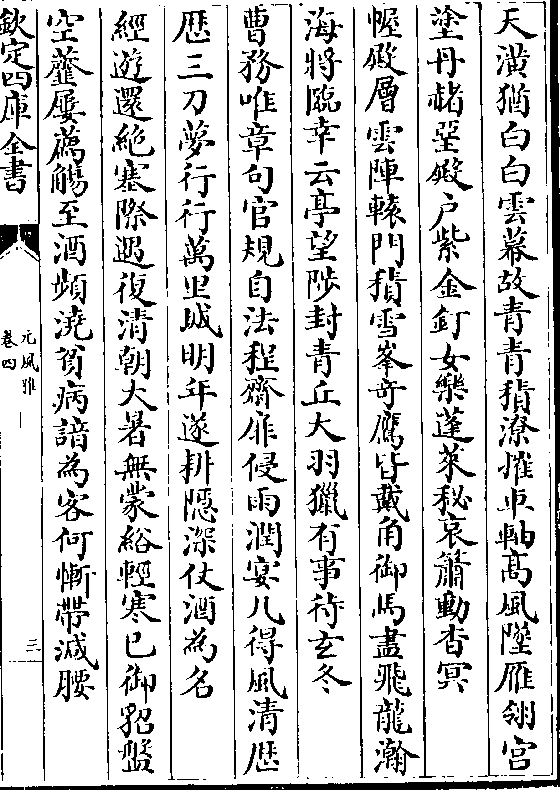 天潢猶白白雲幕故青青積潦摧車軸高風墜雁翎宮
塗丹赭堊殿户紫金釘女樂蓬萊秘哀簫動杳冥
幄殿層雲陣轅門積雪峯奇鷹皆戴角御馬盡飛龍瀚
海將臨幸云亭望陟封青丘大羽獵有事待玄冬
曹務唯章句官規自法程齋扉侵雨潤宴几得風清歴
歴三刀夢行行萬里城明年遂耕隠深仗酒為名
經遊還絶塞際遇復清朝大暑無蒙綌輕寒已御貂盤
空虀屢薦觴至酒頻澆貧病諳為客何慚帶減腰
欽定四庫全書
元風雅
卷四
三